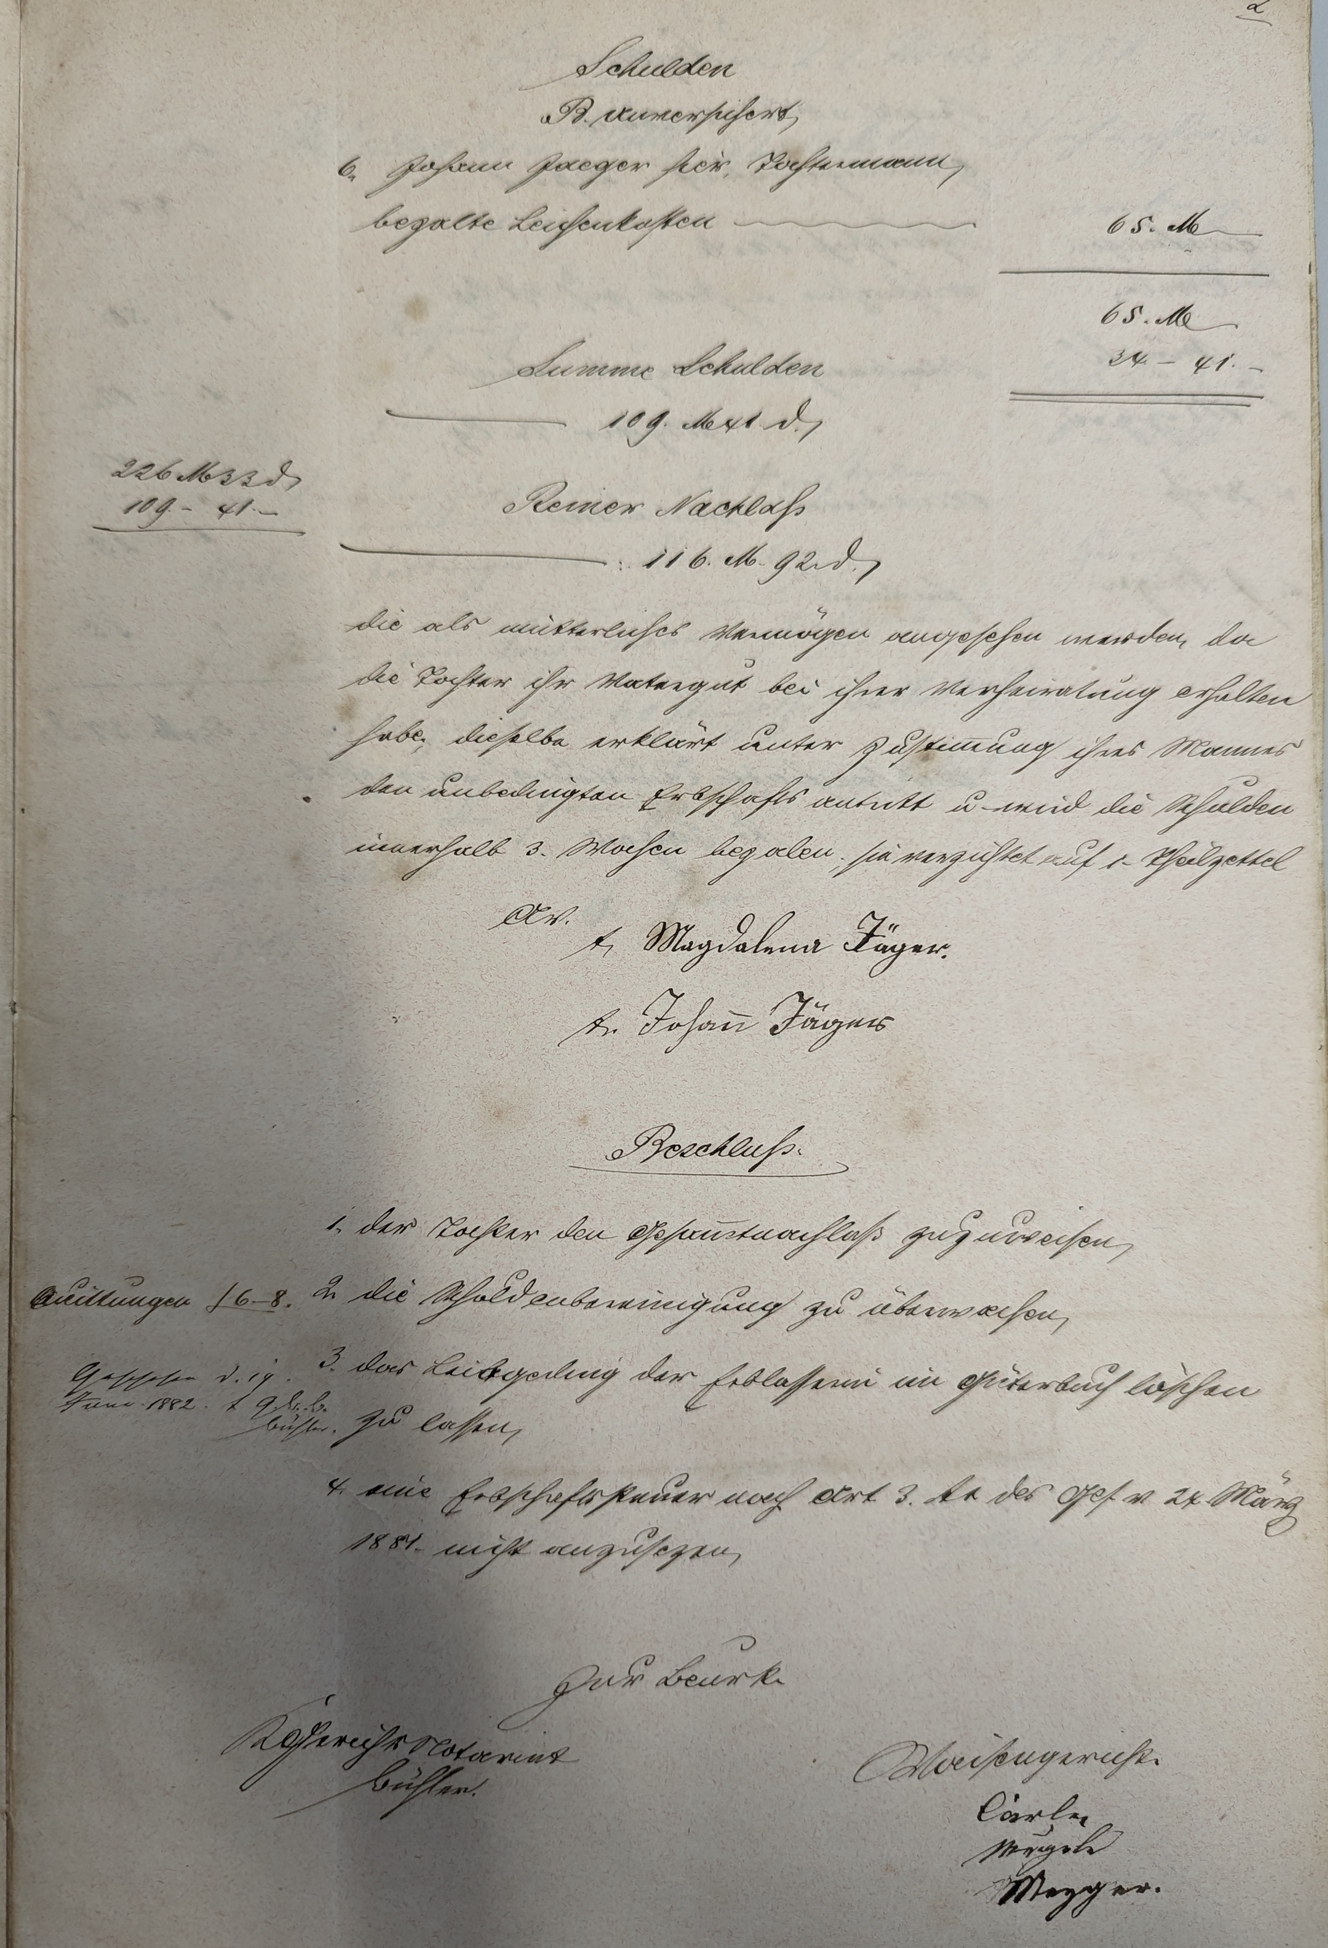 2
Schulden
B. unversichert,
6. Johann Jaeger hier, Tochtermann,
bezalte Leichenkosten
65. M
65. M
Summe Schulden
34 – 41. –
109. M 41 d.,
226 M 33 d,
109. – 41. –
Reiner Nachlaß
: 116. M. 92. d.,
die als mütterliches Vermögen angesehen werden, da
die Tochter ihr Vatergut bei ihrer Verheiratung erhalten
habe, dieselbe erklärt unter Zustimmung ihres Mannes
den unbedingten Erbschaftsantritt u. wird die Schulden
innerhalb 3. Wochen bezalen. sie verzichtet auf 1 Theilzettel
t, Magdalena Jäger.
t. Johann Jäger
Beschluß.
1. der Tochter den Gesamtnachlaß zuzuweisen,
Quittungen § 6–8. 2. die Schuldenbereinigung zu überweisen,
3. das Leibgeding der Erblasserin im Güterbuch löschen
Geschehen d. 19.
1882. t
Bühler. zu lassen,
4. eine Erbschaftssteuer nach Art 3. des Ges. v. 24. März
1881. nicht anzusezen,
Zur Beurk.
K Gerichtsnotariat
Bühler.
Waisengericht.
Mezger.